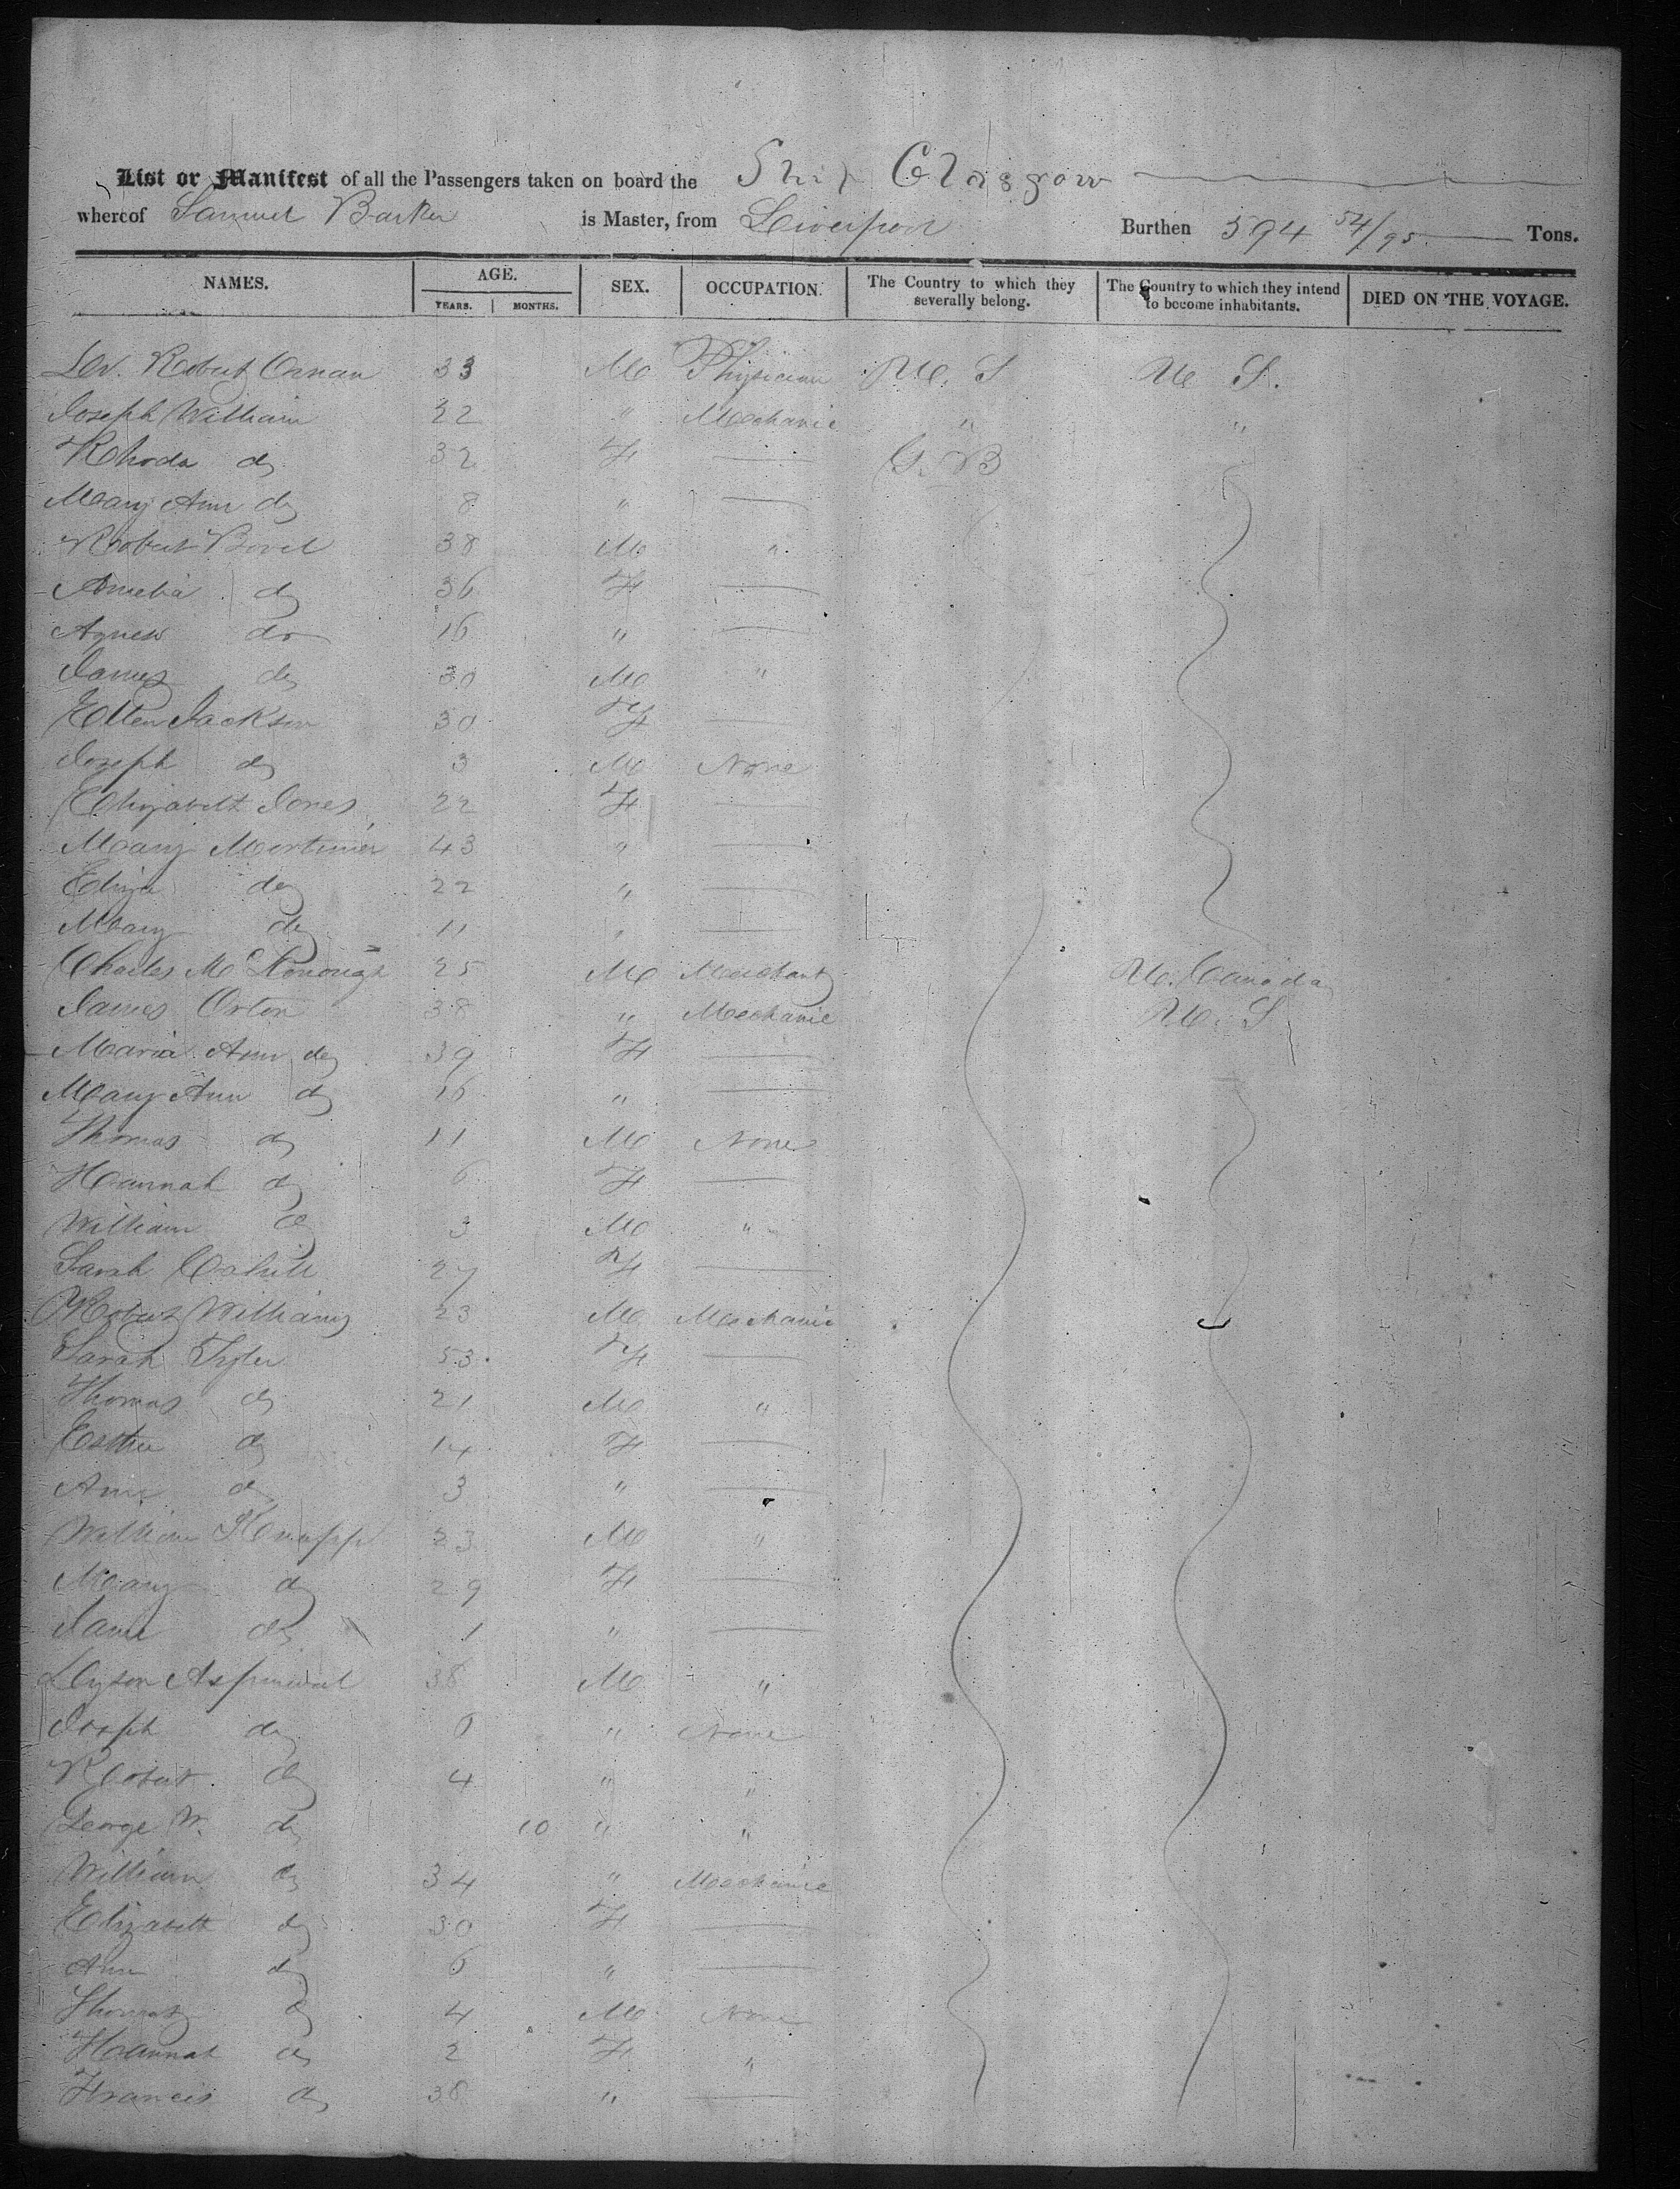 List or Manifest of all the Passengers taken on board the Ship Glasgow
whereof Samuel Barker is Master, from Liverpool Burthen 594 54/95 Tons.
NAMES. AGE. SEX. OCCUPATION. The Country to which they severally belong. The Country to which they intend to become inhabitants. DIED ON THE VOYAGE.
YEARS. MONTHS.
Dr. Robert 33 M Physician U. S U S.
Joseph William 22 " Mechanic " "
Rhoda do 32 F — G. B
Mary Ann do 8 " —
Robert Bovel 38 M "
Amelia do 36 F —
Agness do 16 " —
James do 30 M "
Ellen Jackson 30 F —
Joseph do 3 M None
Elizabeth Jones 22 F —
Mary Mortimer 43 " —
Eliza do 22 " —
Mary do 11 " —
Charles McDonough 25 M Merchant U. Canada
James Orton 38 " Mechanic U. S
Maria Ann do 39 F —
Mary Ann do 16 " —
Thomas do 11 M None
Hannah do 6 F —
William do 3 M "
Sarah Cahill 27 F —
Robert Williams 23 M Mechanic
Sarah Tyler 53 F —
Thomas do 21 M "
Esther do 14 F —
Ann do 3 " —
William Knapp 23 M "
Mary do 29 F —
Jane do 1 " —
Dyson Aspinwal 38 M "
Joseph do 6 " None
Robert do 4 " "
George W. do 10 " "
William do 34 " Mechanic
Elizabeth do 30 F —
Ann do 6 " —
Thomas do 4 M None
Hannah do 2 F "
Francis do 36 " —